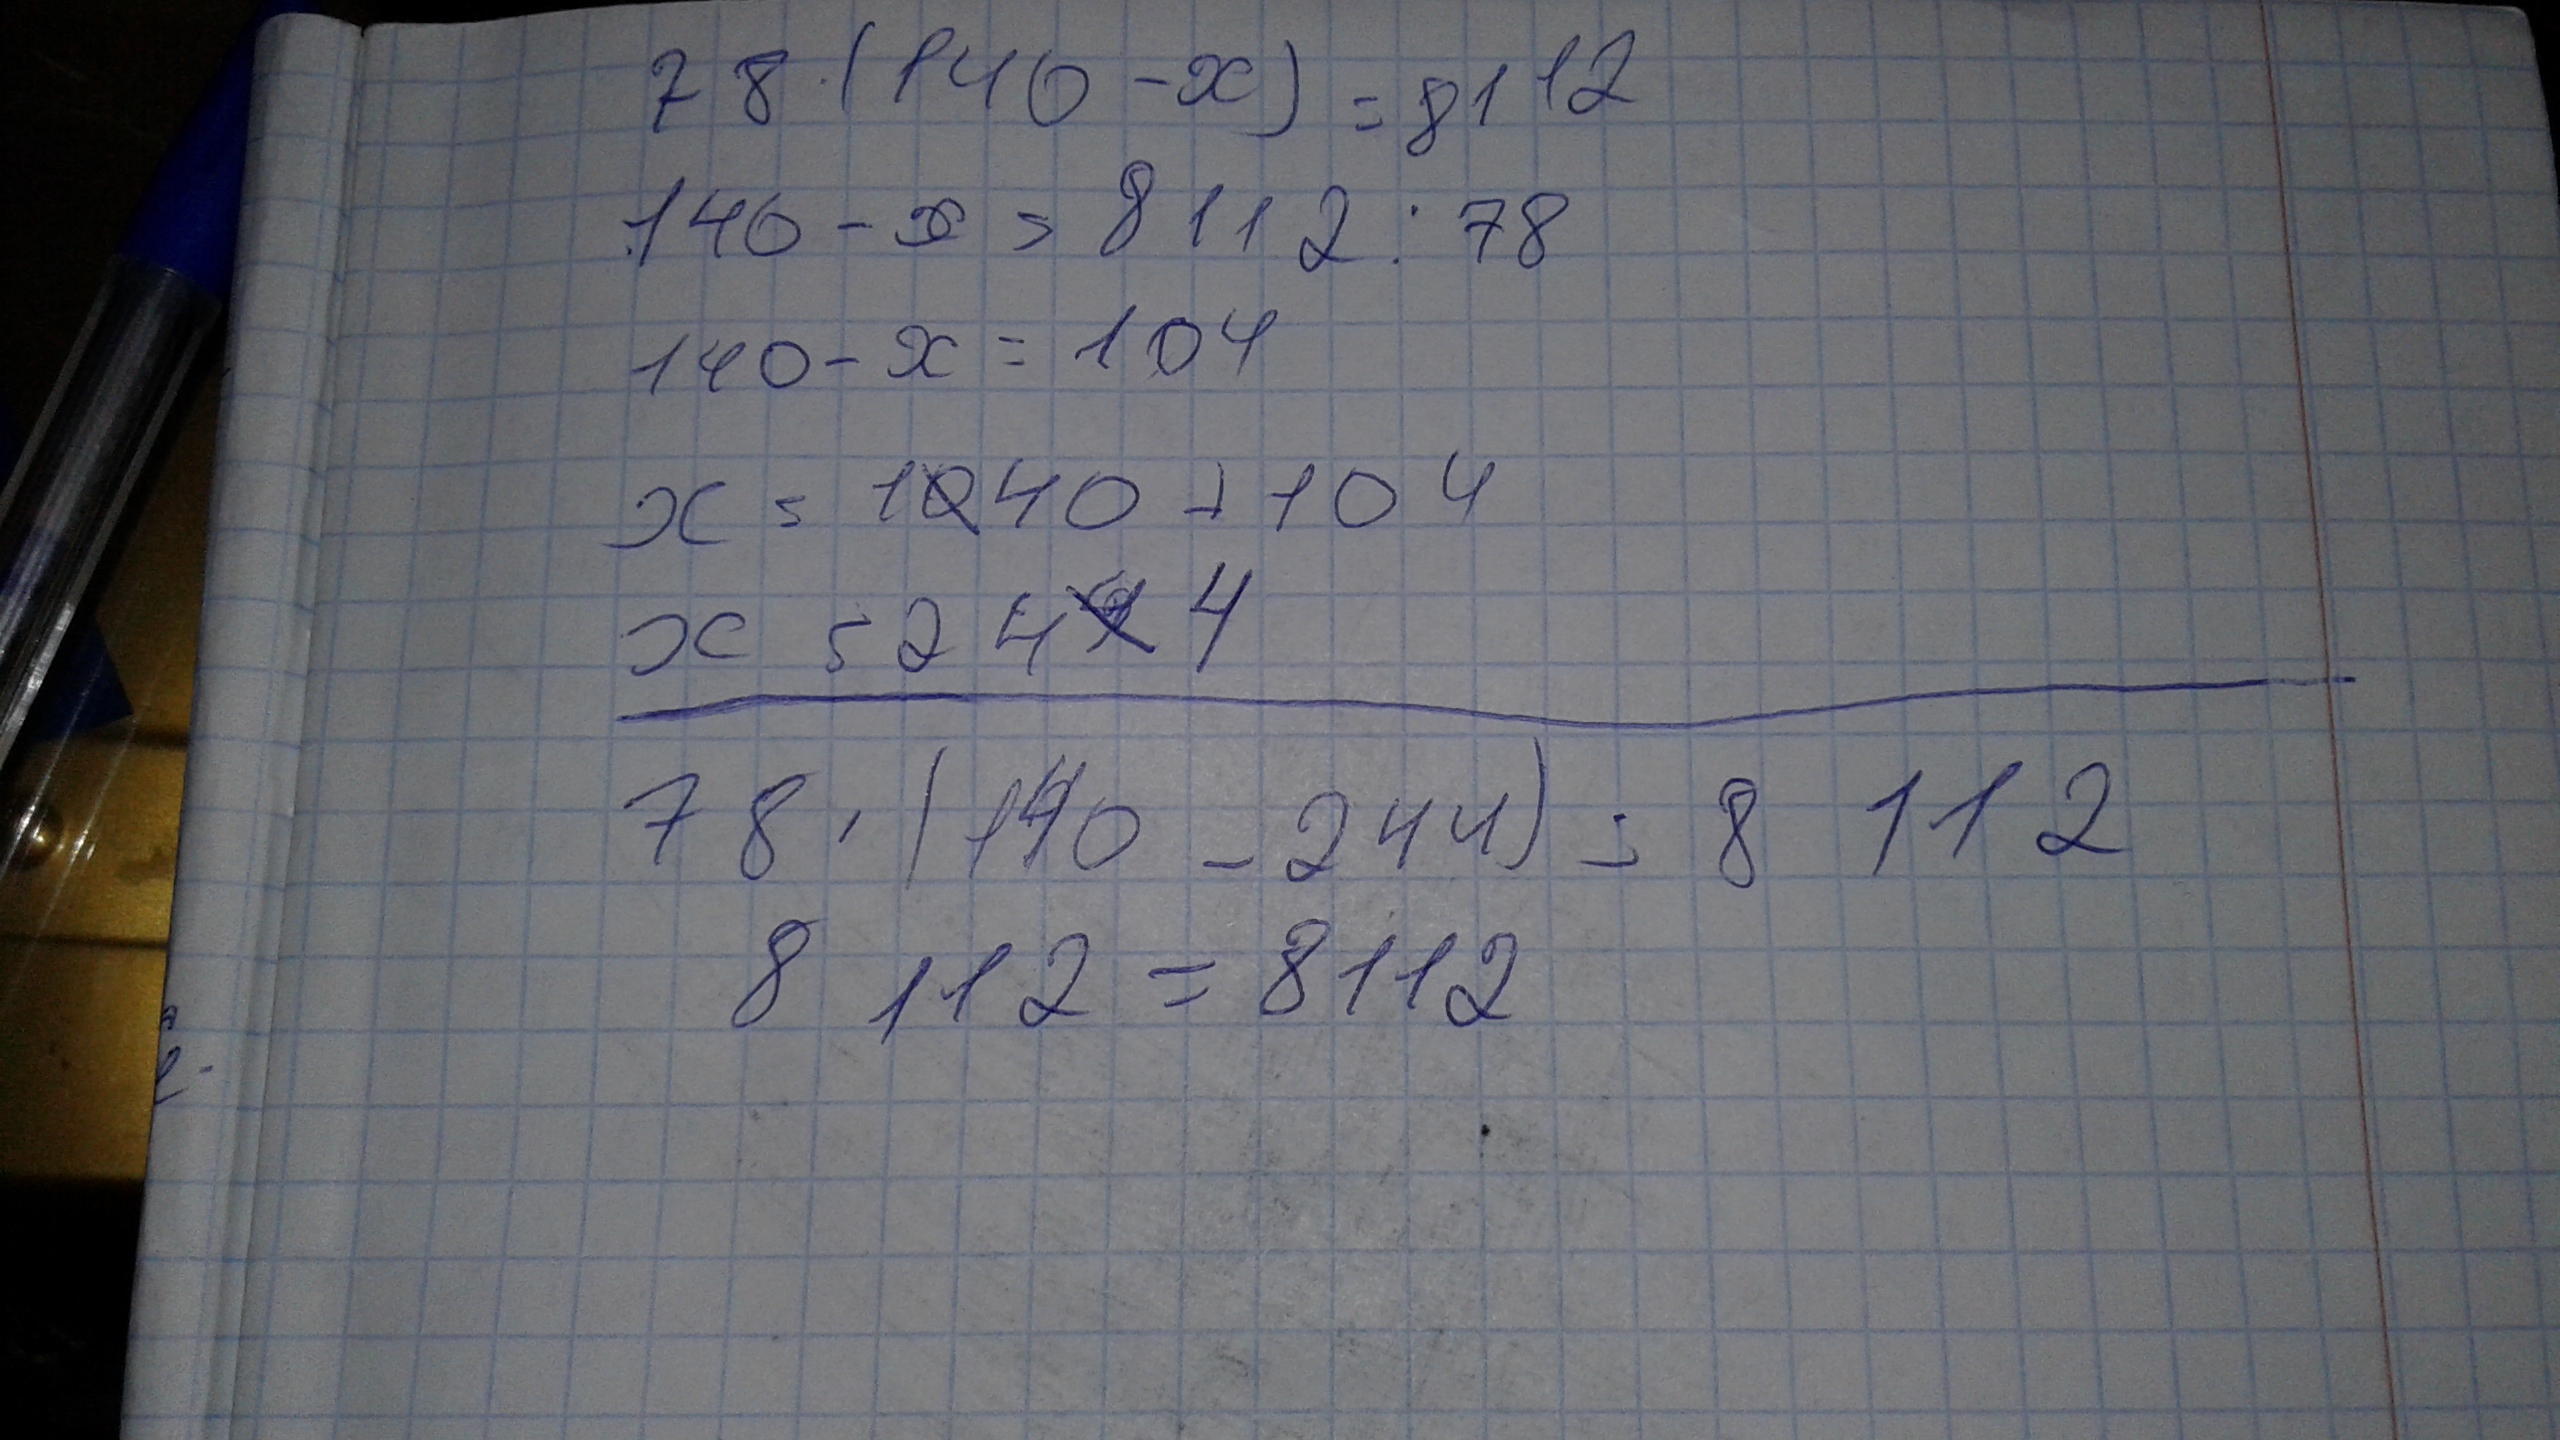 78·(140-x)=8112
140-x=8112:78
140-x=104
x=140+104
x=244
78·(140-244)=8112
8112=8112